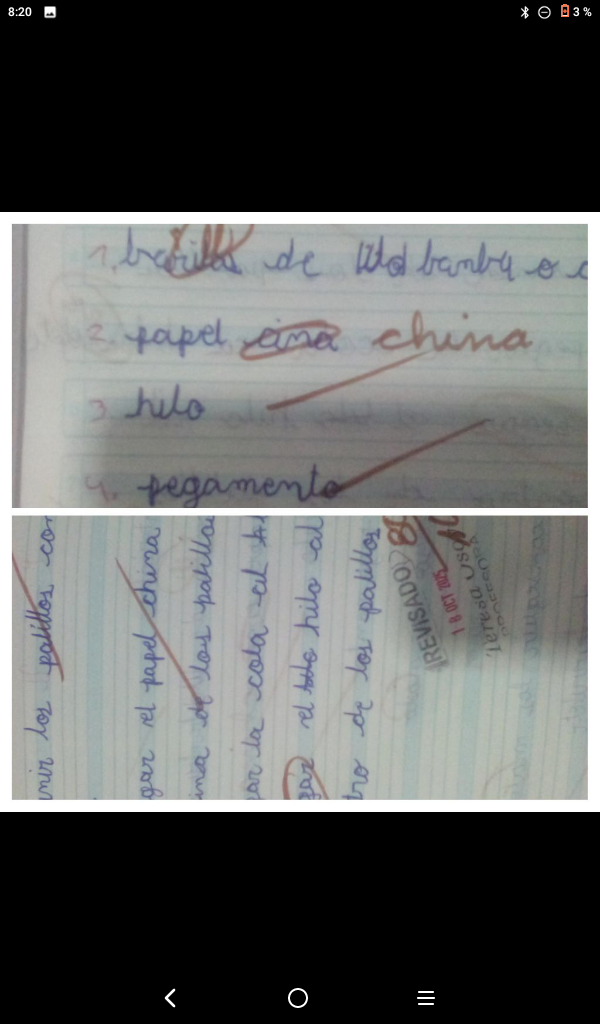 8:20
3 %
1. de bambú o
2. papel cina china
3. hilo
4. pegamento
unir los palillos con
gar el papel china
ima de los palillos
gar la cola al hi
gar el hilo al
tro de los palillos
REVISADO
18 OCT 2025
Teresa
PROFESORA